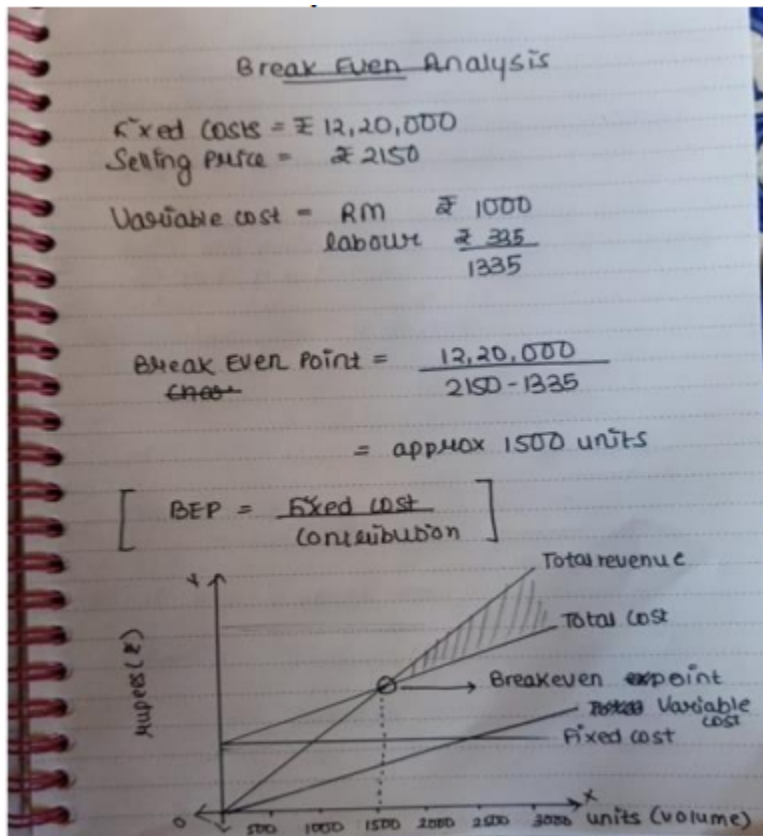 Break Even Analysis
Fixed costs = ₹ 12,20,000
Selling Price = ₹ 2150
Variable cost = RM ₹ 1000
labour ₹ 335
1335
Break Even Point = 12,20,000
2150 - 1335
= approx 1500 units
[ BEP = Fixed cost ]
Contribution
Y
Total revenue
Total cost
rupees (₹)
Breakeven point
Variable
cost
Fixed cost
X
0 500 1000 1500 2000 2500 3000 units (volume)